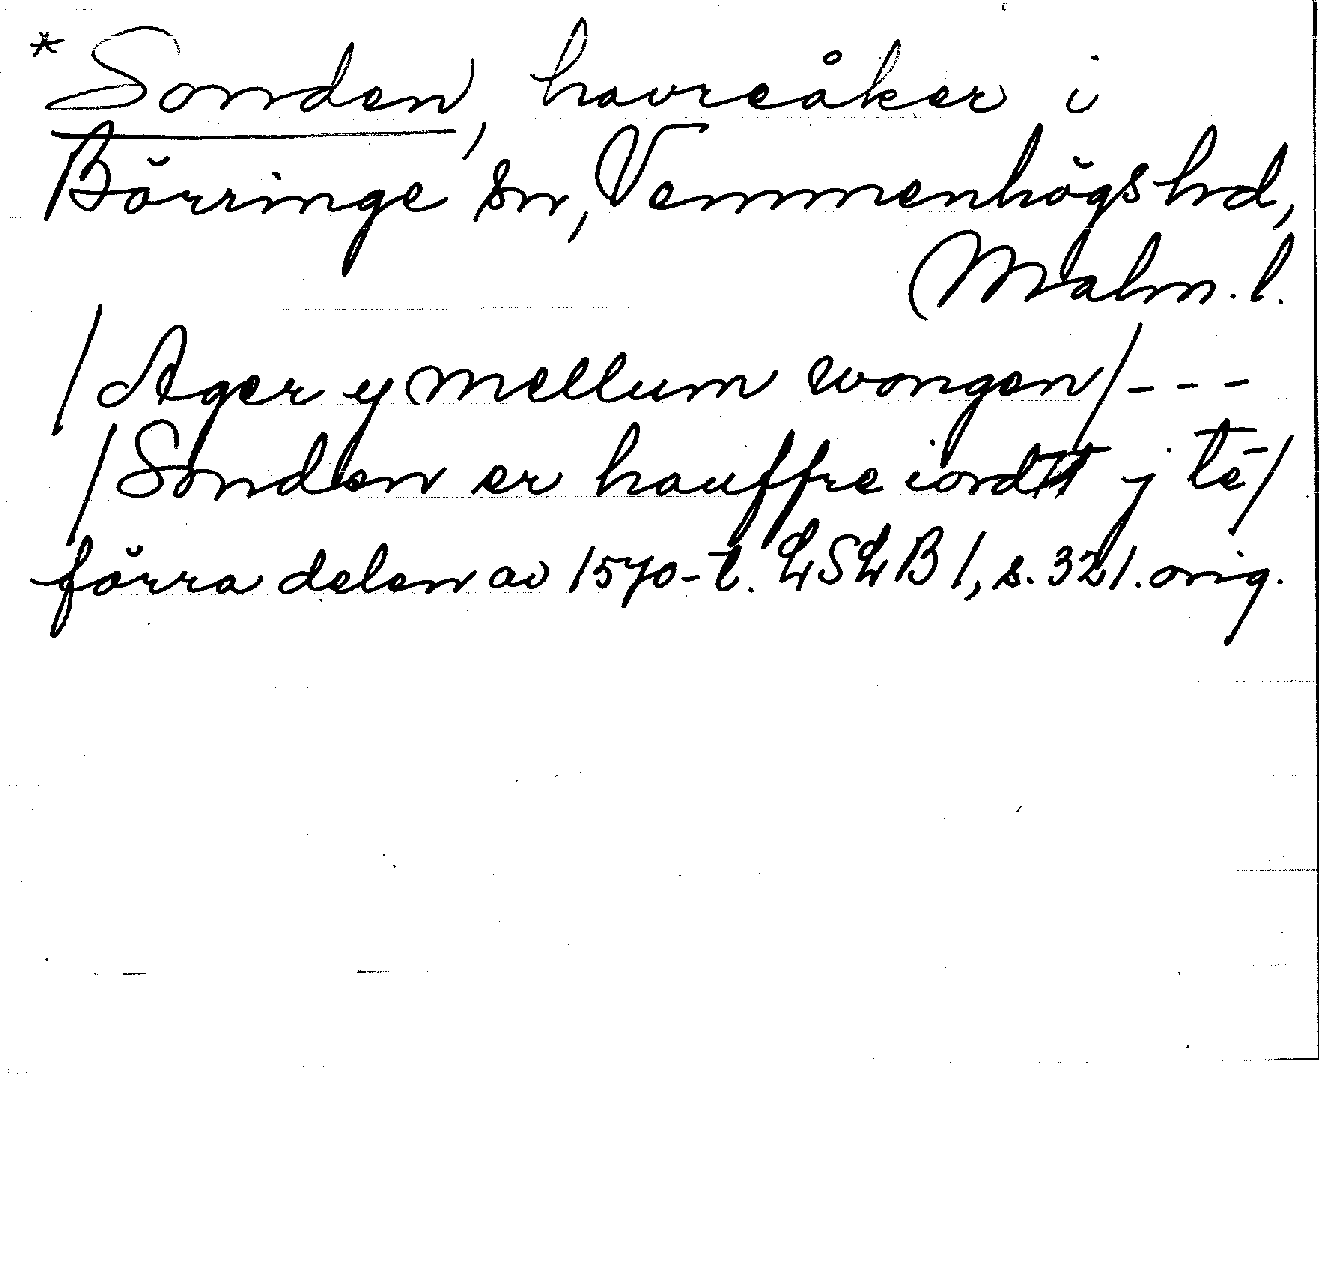 *Sonden, havreåker i
Börringe sn, Vemmenhögs hd,
Malm. l.
/Ager y mellum wongen/---
/Sonden er hauffre iordtt j tē/
förra delen av 1570-t. LSLB 1, s. 321. orig.